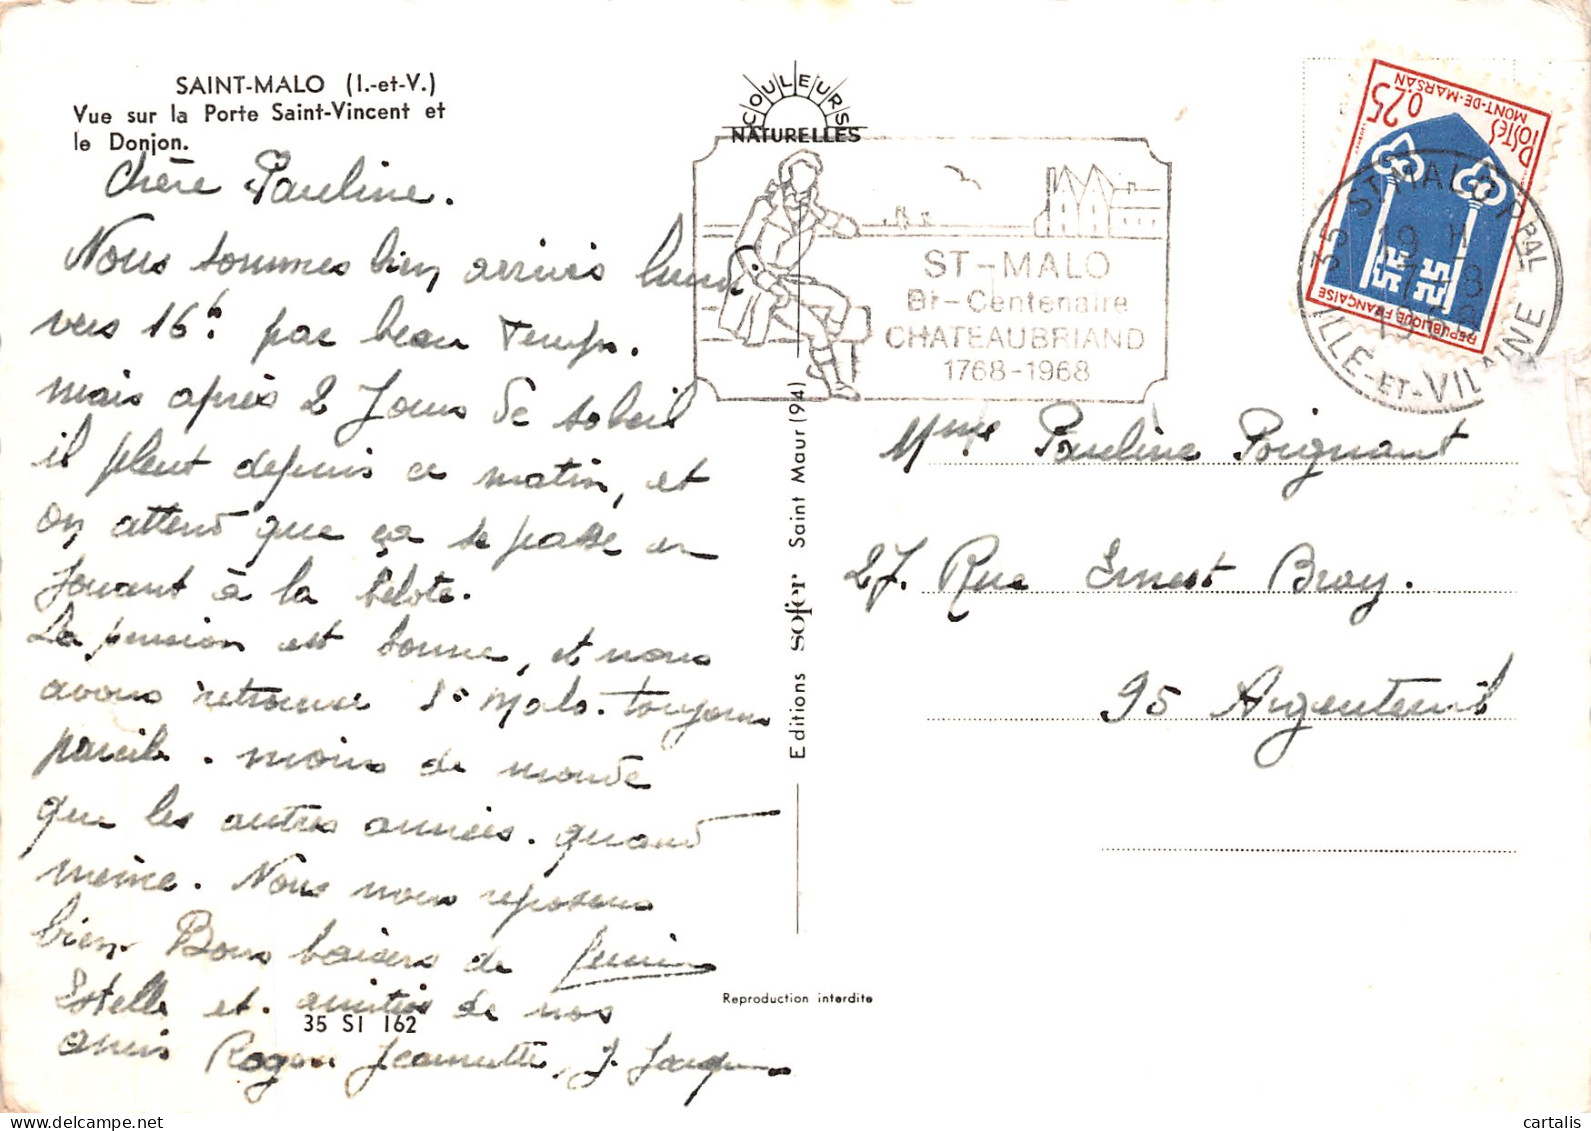 SAINT-MALO (I.-et-V.)
Vue sur la Porte Saint-Vincent et
le Donjon.
Chère Pauline.
Nous sommes bien arrivés lundi
vers 16h. par beau Temps.
mais après 2 Jours de soleil
il pleut depuis ce matin, et
on attend que ça se passe en
Jouant à la belote.
La pension est bonne, et nous
avons retrouvé St Malo. toujours
pareil. moins de monde
que les autres années. quand
même. Nous nous reposons
bien. Bons baisers de
Estelle et. amitiés de nos
amis Roger Jeannette, J. Jacques
35 SI 162
COULEURS
NATURELLES
ST-MALO
Bi-Centenaire
CHATEAUBRIAND
1768-1968
Editions sofer Saint Maur (94)
Reproduction interdite
0,25
POSTES
MONT-DE-MARSAN
REPUBLIQUE FRANÇAISE
35 ST MALO PPAL
19 H
7-8
ILLE-ET-VILAINE
Mme Pauline Poignant
27. Rue Ernest Bray.
95 Argenteuil
cartalis
delcampe.net